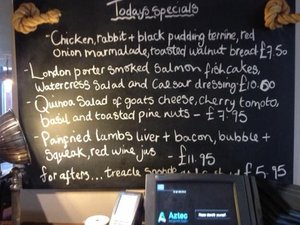 Todays specials
- Chicken, rabbit + black pudding terrine, red
Onion marmalade, toasted walnut bread £7.50
- London porter smoked salmon fishcakes,
Watercress Salad and Caesar dressing - £10.60
- Quinoa Salad of goats cheese, cherry tomato,
basil and toasted pine nuts - £7.95
- Panfried lambs liver + bacon, bubble +
Squeak, red wine jus £11.95
for afters... treacle £5.95
Aztec